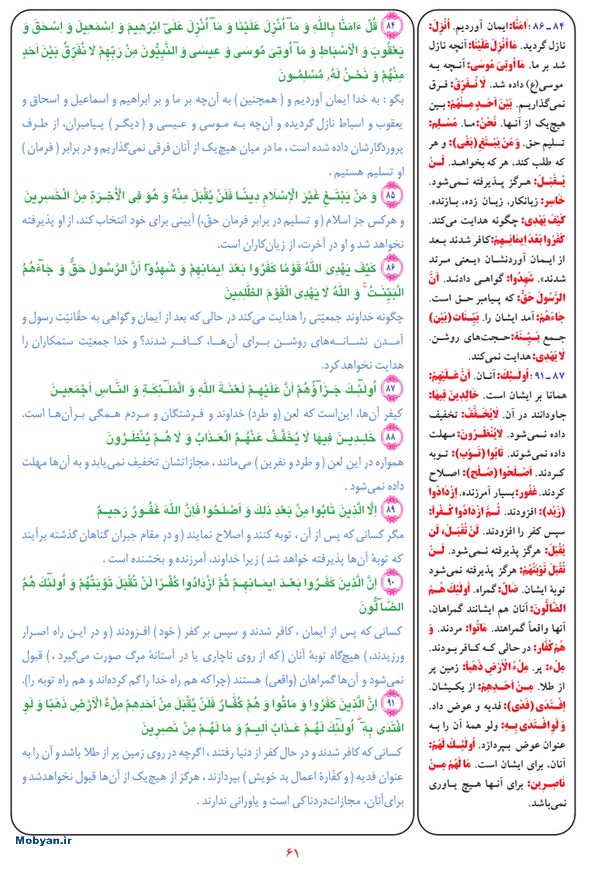 ۸۴ قُلْ ءَامَنَّا بِاللَّهِ وَ مَآ اُنْزِلَ عَلَيْنَا وَ مَآ اُنْزِلَ عَلَىٓ اِبْرٰهِيمَ وَ اِسْمٰعِيلَ وَ اِسْحٰقَ وَ
يَعْقُوبَ وَ الْاَسْبَاطِ وَ مَآ اُوتِىَ مُوسٰى وَ عِيسٰى وَ النَّبِيُّونَ مِنْ رَبِّهِمْ لَا نُفَرِّقُ بَيْنَ اَحَدٍ
مِنْهُمْ وَ نَحْنُ لَهُ مُسْلِمُونَ
بگو : به خدا ایمان آوردیم و ( همچنین ) به آن‌چه بر ما و بر ابراهیم و اسماعیل و اسحاق و
یعقوب و اسباط نازل گردیده و آن‌چه به موسی و عیسی و ( دیگر ) پیامبران، از طرف
پروردگارشان داده شده است ، ما در میان هیچ‌یک از آنان فرقی نمی‌گذاریم و در برابر ( فرمان )
او تسلیم هستیم .
۸۵ وَ مَنْ يَبْتَغِ غَيْرَ الْاِسْلَامِ دِينًا فَلَنْ يُقْبَلَ مِنْهُ وَ هُوَ فِى الْاٰخِرَةِ مِنَ الْخٰسِرِينَ
و هرکس جز اسلام ( و تسلیم در برابر فرمان حق، ) آیینی برای خود انتخاب کند، از او پذیرفته
نخواهد شد و او در آخرت، از زیان‌کاران است.
۸۶ كَيْفَ يَهْدِى اللَّهُ قَوْمًا كَفَرُوا بَعْدَ اِيمَانِهِمْ وَ شَهِدُوٓا اَنَّ الرَّسُولَ حَقٌّ وَ جَآءَهُمُ
الْبَيِّنٰتُ وَ اللَّهُ لَا يَهْدِى الْقَوْمَ الظّٰلِمِينَ
چگونه خداوند جمعیّتی را هدایت می‌کند در حالی که بعد از ایمان و گواهی به حقّانیّت رسول و
آمدن نشانه‌های روشن برای آن‌ها، کافر شدند؟ و خدا جمعیّت ستمکاران را
هدایت نخواهد کرد.
۸۷ اُولٰٓئِكَ جَزَآؤُهُمْ اَنَّ عَلَيْهِمْ لَعْنَةَ اللَّهِ وَ الْمَلٰٓئِكَةِ وَ النَّاسِ اَجْمَعِينَ
کیفر آن‌ها، این‌است که لعن (و طرد) خداوند و فرشتگان و مردم همگی برآن‌ها است.
۸۸ خٰلِدِينَ فِيهَا لَا يُخَفَّفُ عَنْهُمُ الْعَذَابُ وَ لَا هُمْ يُنْظَرُونَ
همواره در این لعن ( و طرد و نفرین ) می‌مانند ، مجازاتشان تخفیف نمی‌یابد و به آن‌ها مهلت
داده نمی‌شود .
۸۹ اِلَّا الَّذِينَ تَابُوا مِنْ بَعْدِ ذٰلِكَ وَ اَصْلَحُوا فَاِنَّ اللَّهَ غَفُورٌ رَحِيمٌ
مگر کسانی که پس از آن ، توبه کنند و اصلاح نمایند ( و در مقام جبران گناهان گذشته برآیند
که توبهٔ آن‌ها پذیرفته خواهد شد ) زیرا خداوند، آمرزنده و بخشنده است .
۹۰ اِنَّ الَّذِينَ كَفَرُوا بَعْدَ اِيمَانِهِمْ ثُمَّ ازْدَادُوا كُفْرًا لَنْ تُقْبَلَ تَوْبَتُهُمْ وَ اُولٰٓئِكَ هُمُ
الضَّآلُّونَ
کسانی که پس از ایمان ، کافر شدند و سپس بر کفر ( خود ) افزودند ( و در این راه اصرار
ورزیدند، ) هیچ‌گاه توبهٔ آنان ( که از روی ناچاری یا در آستانهٔ مرگ صورت می‌گیرد ، ) قبول
نمی‌شود و آن‌ها گمراهان (واقعی) هستند (چراکه هم راه خدا را گم کرده‌اند و هم راه توبه را).
۹۱ اِنَّ الَّذِينَ كَفَرُوا وَ مَاتُوا وَ هُمْ كُفَّارٌ فَلَنْ يُقْبَلَ مِنْ اَحَدِهِمْ مِلْءُ الْاَرْضِ ذَهَبًا وَ لَوِ
افْتَدٰى بِهِ اُولٰٓئِكَ لَهُمْ عَذَابٌ اَلِيمٌ وَ مَا لَهُمْ مِنْ نَصِرِينَ
کسانی که کافر شدند و در حال کفر از دنیا رفتند ، اگرچه در روی زمین پر از طلا باشد و آن را به
عنوان فدیه ( و کفّارهٔ اعمال بد خویش ) بپردازند ، هرگز از هیچ‌یک از آن‌ها قبول نخواهدشد و
برای‌آنان، مجازات‌دردناکی است و یاورانی ندارند .
۸۴ـ۸۶ : اٰمَنَّا: ایمان آوردیم. اُنْزِلَ:
نازل گردید. مَا اُنْزِلَ عَلَيْنَا: آنچه نازل
شد بر ما. مَا اُوتِىَ مُوسٰى: آنچه به
موسی(ع) داده شد. لَا نُفَرِّقُ: فرق
نمی‌گذاریم. بَيْنَ اَحَدٍ مِنْهُمْ: بین
هیچ‌یک از آنها. نَحْنُ: ما. مُسْلِم:
تسلیم حق. وَ مَنْ يَبْتَغِ (بَغْی): و هر
که طلب کند، هر که بخواهد. لَنْ
يُقْبَلَ: هرگز پذیرفته نمی‌شود.
خَاسِر: زیانکار، زیان زده، بازنده.
كَيْفَ يَهْدِى: چگونه هدایت می‌کند.
كَفَرُوا بَعْدَ اِيمَانِهِمْ: کافر شدند بعد
از ایمان آوردنشان «یعنی مرتد
شدند». شَهِدُوا: گواهی دادند. اَنَّ
الرَّسُولَ حَقٌّ: که پیامبر حق است.
جَاءَهُمْ: آمد ایشان را. بَيِّنَات (بَيْن)
جمع بَيِّنَة: حجت‌های روشن.
لَا يَهْدِى: هدایت نمی‌کند.
۸۷ـ۹۱ : اُولٰٓئِكَ: آنان. اَنَّ عَلَيْهِمْ:
همانا بر ایشان است. خَالِدِينَ فِيهَا:
جاودانند در آن. لَا يُخَفَّفُ: تخفیف
داده نمی‌شود. لَا يُنْظَرُونَ: مهلت
داده نمی‌شوند. تَابُوا (تَوْب): توبه
کردند. اَصْلَحُوا (صُلْح): اصلاح
کردند. غَفُور: بسیار آمرزنده. اِزْدَادُوا
(زَيْد): افزودند. ثُمَّ ازْدَادُوا كُفْرًا:
سپس کفر را افزودند. لَنْ تُقْبَلَ، لَنْ
يُقْبَلَ: هرگز پذیرفته نمی‌شود. لَنْ
تُقْبَلَ تَوْبَتُهُمْ: هرگز پذیرفته نمی‌شود
توبهٔ ایشان. ضَالّ: گمراه. اُولٰٓئِكَ هُمُ
الضَّالُّونَ: آنان هم ایشانند گمراهان،
آنها واقعاً گمراهند. مَاتُوا: مردند. وَ
هُمْ كُفَّار: در حالی که کافر بودند.
مِلْء: پر. مِلْءُ الْاَرْضِ ذَهَبًا: زمین پر
از طلا. مِنْ اَحَدِهِمْ: از یکیشان.
اِفْتَدٰى (فَدْی): فدیه و عوض داد.
وَ لَوِ افْتَدٰى بِهِ: ولو همهٔ آن را به
عنوان عوض بپردازد. اُولٰٓئِكَ لَهُمْ:
آنان، برای ایشان است. مَا لَهُمْ مِنْ
نَاصِرِين: برای آنها هیچ یاوری
نمی‌باشد.
Mobyan.ir
۶۱